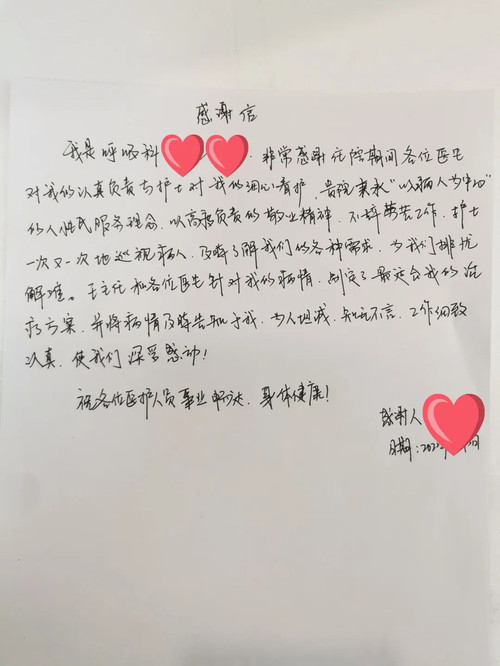 感谢信
我是呼吸科 非常感谢住院期间各位医生
对我的认真负责与护士对我的细心看护，贵院秉承“以病人为中心”
的人性化服务理念，以高度负责的敬业精神，不辞劳苦工作，护士
一次又一次地巡视病人，及时了解我们的各种需求，为我们排忧
解难。王主任和各位医生针对我的病情，制定了最适合我的治
疗方案，并将病情及时告知于我，为人坦诚，知无不言，工作细致
认真，使我们深受感动！
祝各位医护人员事业顺利，身体健康！
感谢人
日期：202